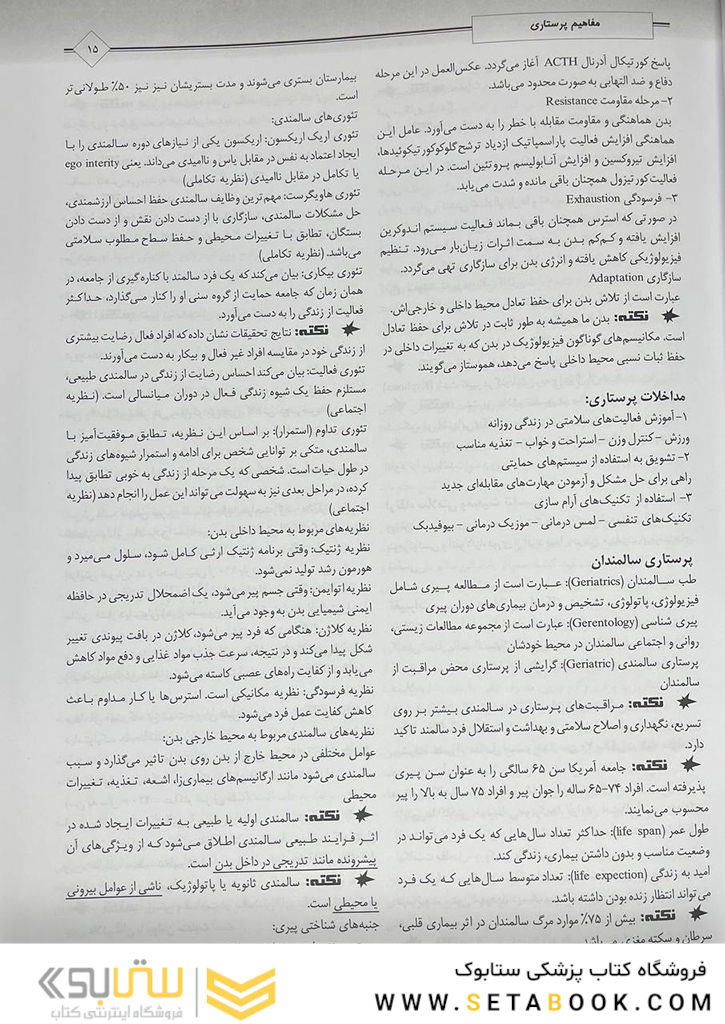 مفاهیم پرستاری
۱۵
پاسخ کورتیکال آدرنال ACTH آغاز می‌گردد. عکس‌العمل در این مرحله
دفاع و ضد التهابی به صورت محدود می‌باشد.
۲- مرحله مقاومت Resistance
بدن هماهنگی و مقاومت مقابله با خطر را به دست می‌آورد. عامل این
هماهنگی افزایش فعالیت پاراسمپاتیک ازدیاد ترشح گلوکوکورتیکوئیدها،
افزایش تیروکسین و افزایش آنابولیسم پروتئین است. در این مرحله
فعالیت کورتیزول همچنان باقی مانده و شدت می‌یابد.
۳- فرسودگی Exhaustion
در صورتی که استرس همچنان باقی بماند فعالیت سیستم اندوکرین
افزایش یافته و کم‌کم بدن به سمت اثرات زیان‌بار می‌رود. تنظیم
فیزیولوژیکی کاهش یافته و انرژی بدن برای سازگاری تهی می‌گردد.
سازگاری Adaptation
عبارت است از تلاش بدن برای حفظ تعادل محیط داخلی و خارجی‌اش.
نکته: بدن ما همیشه به طور ثابت در تلاش برای حفظ تعادل
است. مکانیسم‌های گوناگون فیزیولوژیک در بدن که به تغییرات داخلی در
حفظ ثبات نسبی محیط داخلی پاسخ می‌دهد، هموستاز می‌گویند.
مداخلات پرستاری:
۱- آموزش فعالیت‌های سلامتی در زندگی روزانه
ورزش – کنترل وزن – استراحت و خواب – تغذیه مناسب
۲- تشویق به استفاده از سیستم‌های حمایتی
راهی برای حل مشکل و آزمودن مهارت‌های مقابله‌ای جدید
۳- استفاده از تکنیک‌های آرام سازی
تکنیک‌های تنفسی – لمس درمانی – موزیک درمانی – بیوفیدبک
پرستاری سالمندان
طب سالمندان (Geriatrics): عبارت است از مطالعه پیری شامل
فیزیولوژی، پاتولوژی، تشخیص و درمان بیماری‌های دوران پیری
پیری شناسی (Gerentology): عبارت است از مجموعه مطالعات زیستی،
روانی و اجتماعی سالمندان در محیط خودشان
پرستاری سالمندی (Geriatric): گرایشی از پرستاری محض مراقبت از
سالمندان
نکته: مراقبت‌های پرستاری در سالمندی بیشتر بر روی
تسریع، نگهداری و اصلاح سلامتی و بهداشت و استقلال فرد سالمند تاکید
دارد.
نکته: جامعه آمریکا سن ۶۵ سالگی را به عنوان سن پیری
پذیرفته است. افراد ۷۴-۶۵ ساله را جوان پیر و افراد ۷۵ سال به بالا را پیر
محسوب می‌نمایند.
طول عمر (life span): حداکثر تعداد سال‌هایی که یک فرد می‌تواند در
وضعیت مناسب و بدون داشتن بیماری، زندگی کند.
امید به زندگی (life expection): تعداد متوسط سال‌هایی که یک فرد
می‌تواند انتظار زنده بودن داشته باشد.
نکته: بیش از ۷۵٪ موارد مرگ سالمندان در اثر بیماری قلبی،
سرطان و سکته مغزی می‌باشد
بیمارستان بستری می‌شوند و مدت بستریشان نیز نیز ۵۰٪ طولانی‌تر
است.
تئوری‌های سالمندی:
تئوری اریک اریکسون: اریکسون یکی از نیازهای دوره سالمندی را با
ایجاد اعتماد به نفس در مقابل یاس و ناامیدی می‌داند. یعنی ego interity
یا تکامل در مقابل ناامیدی (نظریه تکاملی)
تئوری هاویگرست: مهم‌ترین وظایف سالمندی حفظ احساس ارزشمندی،
حل مشکلات سالمندی، سازگاری با از دست دادن نقش و از دست دادن
بستگان، تطابق با تغییرات محیطی و حفظ سطح مطلوب سلامتی
می‌باشد. (نظریه تکاملی)
تئوری بیکاری: بیان می‌کند که یک فرد سالمند با کناره‌گیری از جامعه، در
همان زمان که جامعه حمایت از گروه سنی او را کنار می‌گذارد، حداکثر
فعالیت از زندگی را به دست می‌آورد.
نکته: نتایج تحقیقات نشان داده که افراد فعال رضایت بیشتری
از زندگی خود در مقایسه افراد غیر فعال و بیکار به دست می‌آورند.
تئوری فعالیت: بیان می‌کند احساس رضایت از زندگی در سالمندی طبیعی،
مستلزم حفظ یک شیوه زندگی فعال در دوران میانسالی است. (نظریه
اجتماعی)
تئوری تداوم (استمرار): بر اساس این نظریه، تطابق موفقیت‌آمیز با
سالمندی، متکی بر توانایی شخص برای ادامه و استمرار شیوه‌های زندگی
در طول حیات است. شخصی که یک مرحله از زندگی به خوبی تطابق پیدا
کرده، در مراحل بعدی نیز به سهولت می‌تواند این عمل را انجام دهد (نظریه
اجتماعی)
نظریه‌های مربوط به محیط داخلی بدن:
نظریه ژنتیک: وقتی برنامه ژنتیک ارثی کامل شود، سلول می‌میرد و
هورمون رشد تولید نمی‌شود.
نظریه اتوایمن: وقتی جسم پیر می‌شود، یک اضمحلال تدریجی در حافظه
ایمنی شیمیایی بدن به وجود می‌آید.
نظریه کلاژن: هنگامی که فرد پیر می‌شود، کلاژن در بافت پیوندی تغییر
شکل پیدا می‌کند و در نتیجه، سرعت جذب مواد غذایی و دفع مواد کاهش
می‌یابد و از کفایت راه‌های عصبی کاسته می‌شود.
نظریه فرسودگی: نظریه مکانیکی است. استرس‌ها یا کار مداوم باعث
کاهش کفایت عمل فرد می‌شود.
نظریه‌های سالمندی مربوط به محیط خارجی بدن:
عوامل مختلفی در محیط خارج از بدن روی بدن تاثیر می‌گذارد و سبب
سالمندی می‌شود مانند ارگانیسم‌های بیماری‌زا، اشعه، تغذیه، تغییرات
محیطی
نکته: سالمندی اولیه یا طبیعی به تغییرات ایجاد شده در
اثر فرایند طبیعی سالمندی اطلاق می‌شود که از ویژگی‌های آن
پیشرونده مانند تدریجی در داخل بدن است.
نکته: سالمندی ثانویه یا پاتولوژیک، ناشی از عوامل بیرونی
یا محیطی است.
جنبه‌های شناختی پیری:
فروشگاه کتاب پزشکی ستابوک
WWW.SETABOOK.COM
ستابوک
فروشگاه اینترنتی کتاب